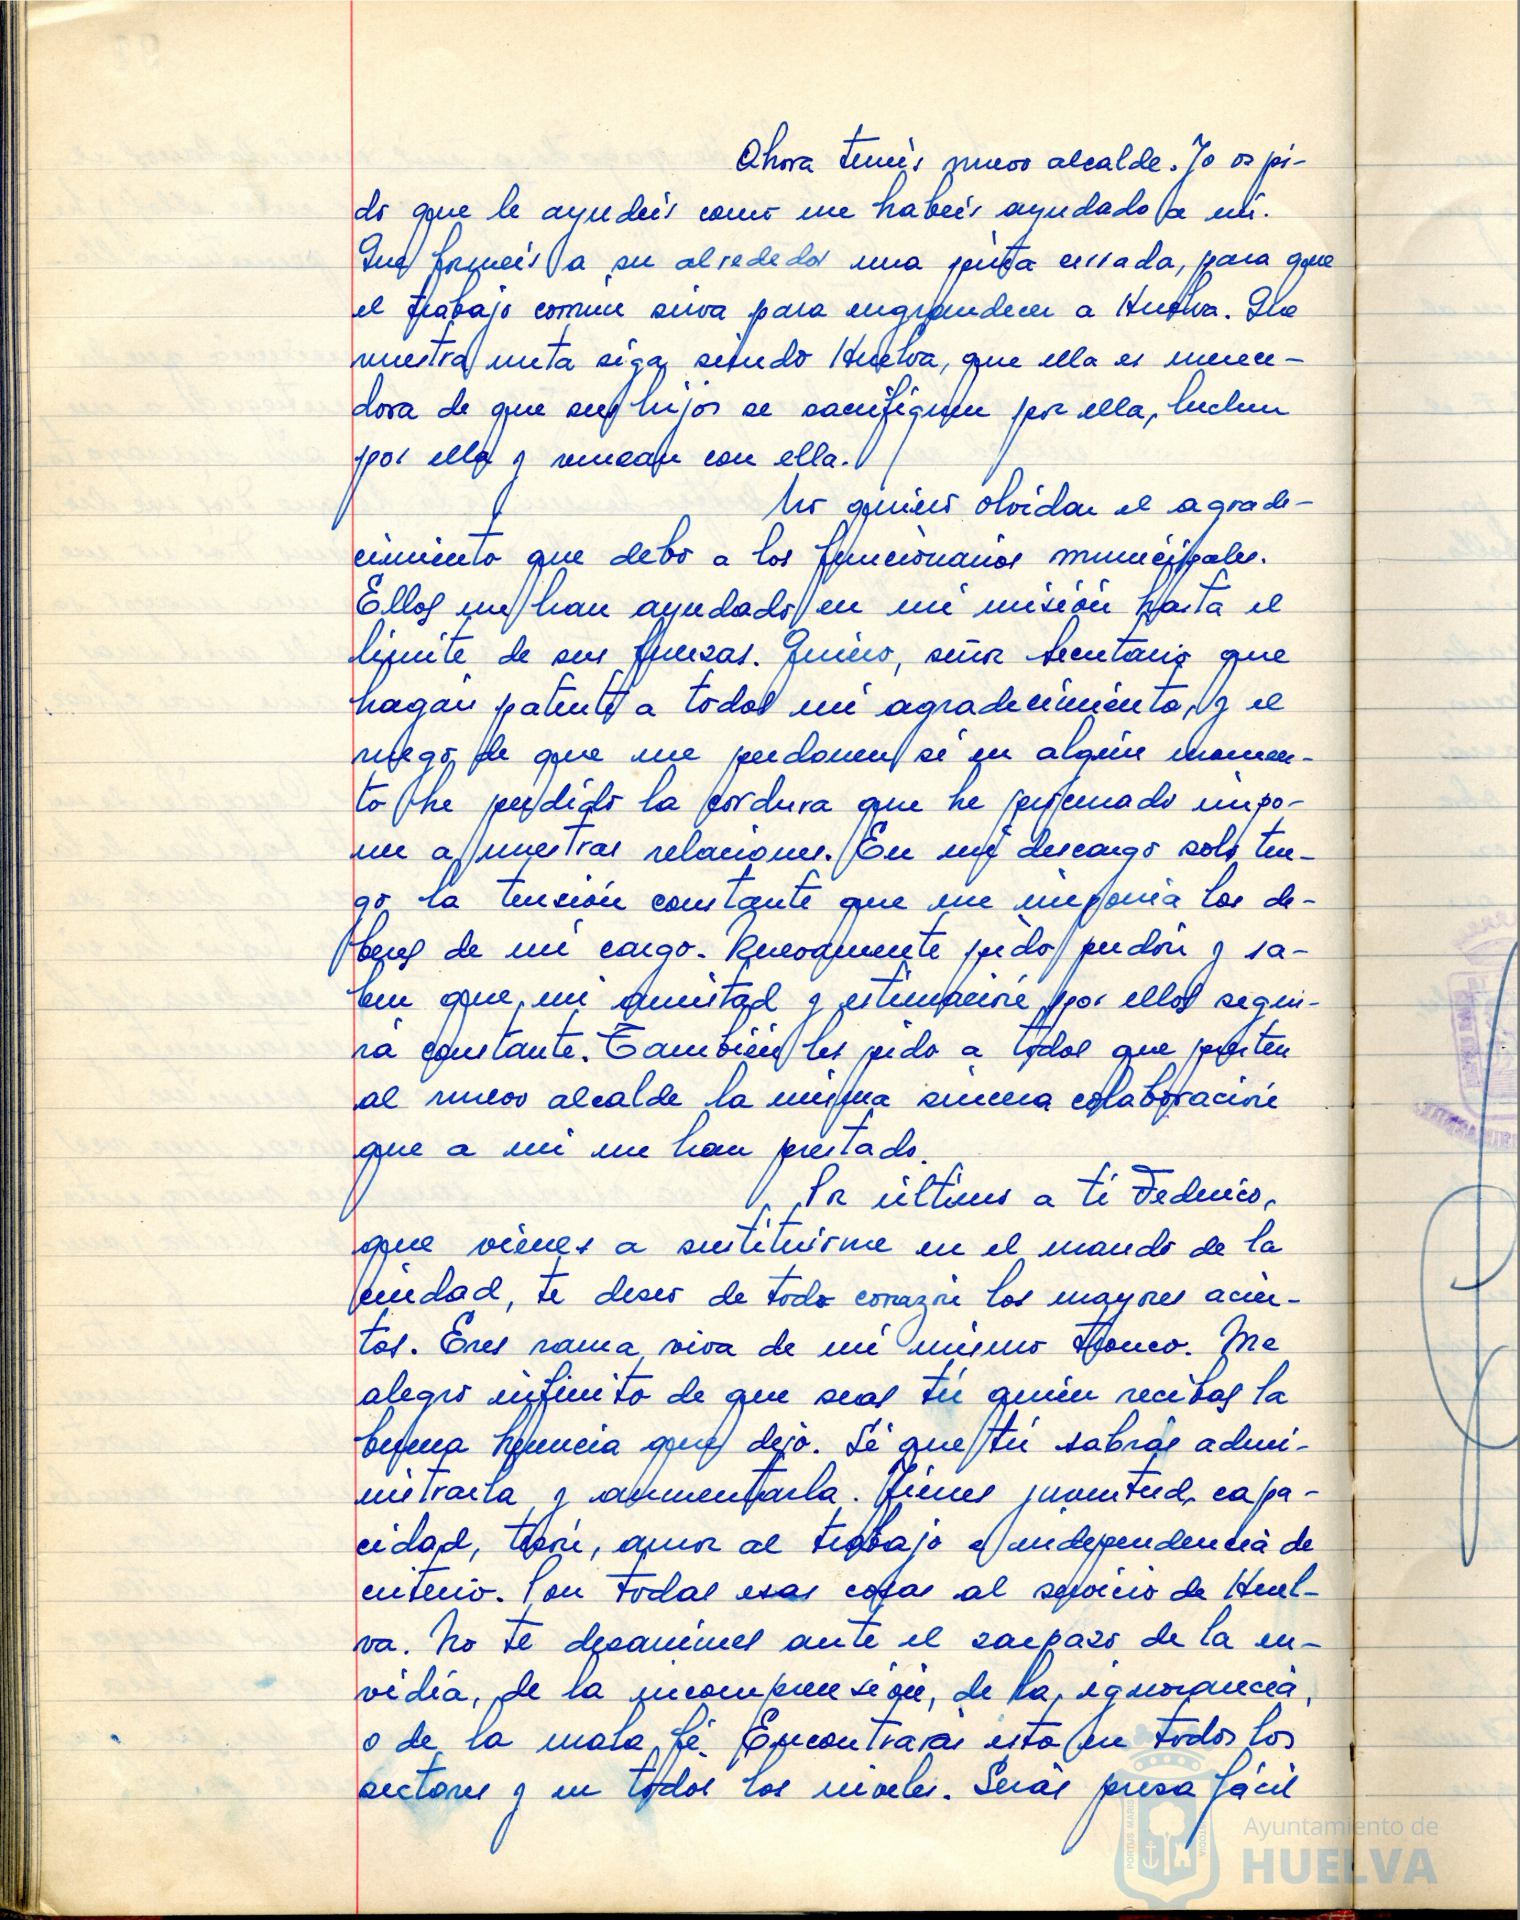 Ahora teneis nuevo alcalde. Yo os pi-
do que le ayudeis como me habeis ayudado a mi.
Que formeis a su alrededor una piña cerrada, para que
el trabajo común sirva para engrandecer a Huelva. Que
vuestra meta siga siendo Huelva, que ella es merece-
dora de que sus hijos se sacrifiquen por ella, luchen
por ella y venzan con ella.
No quiero olvidar el agrade-
cimiento que debo a los funcionarios municipales.
Ellos me han ayudado en mi misión hasta el
limite de sus fuerzas. Quiero, señor Secretario que
hagan patente a todos mi agradecimiento, y el
ruego de que me perdonen si en algún momen-
to he perdido la cordura que he procurado impo-
ner a nuestras relaciones. En mi descargo solo ten-
go la tensión constante que me imponia los de-
beres de mi cargo. Nuevamente pido perdón y sa-
ben que mi amistad y estimación por ellos segui-
rá constante. También les pido a todos que presten
al nuevo alcalde la misma sincera colaboración
que a mi me han prestado.
Por último a ti Federico,
que vienes a sustituirme en el mando de la
ciudad, te deseo de todo corazón los mayores acier-
tos. Eres rama viva de mi mismo tronco. Me
alegro infinito de que seas tú quien recibas la
buena herencia que dejo. Sé que tú sabrás admi-
nistrarla y aumentarla. Tienes juventud, capa-
cidad, tesón, amor al trabajo e independencia de
criterio. Pon todas esas cosas al servicio de Huel-
va. No te desanimes ante el zarpazo de la en-
vidia, de la incomprensión, de la ignorancia,
o de la mala fé. Encontrarás esto en todos los
sectores y en todos los niveles. Serás presa fácil
Ayuntamiento de
HUELVA